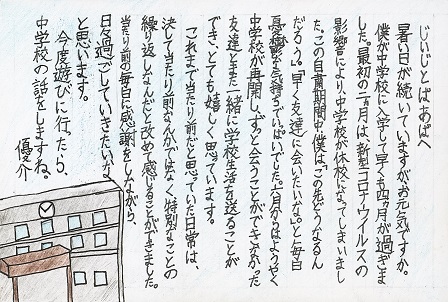 じいじとばあばへ
暑い日が続いていますがお元気ですか。
僕が中学校に入学して早くも四ヶ月が過ぎま
した。最初の二ヶ月は、新型コロナウイルスの
影響により、中学校が休校になってしまいまし
た。この自粛期間中、僕は「この先どうなるん
だろう。」「早く友達に会いたいな。」と毎日
憂鬱な気持ちでいっぱいでした。六月からはようやく
中学校が再開し、ずっと会うことができなかった
友達とまた一緒に学校生活を送ることが
でき、とても嬉しく思っています。
これまで当たり前だと思っていた日常は、
決して当たり前なんかではなく、特別なことの
繰り返しなんだと改めて感じることができました。
当たり前の毎日に感謝をしながら、
日々過ごしていきたいな
と思います。
今度遊びに行ったら、
中学校の話をしますね。
優介